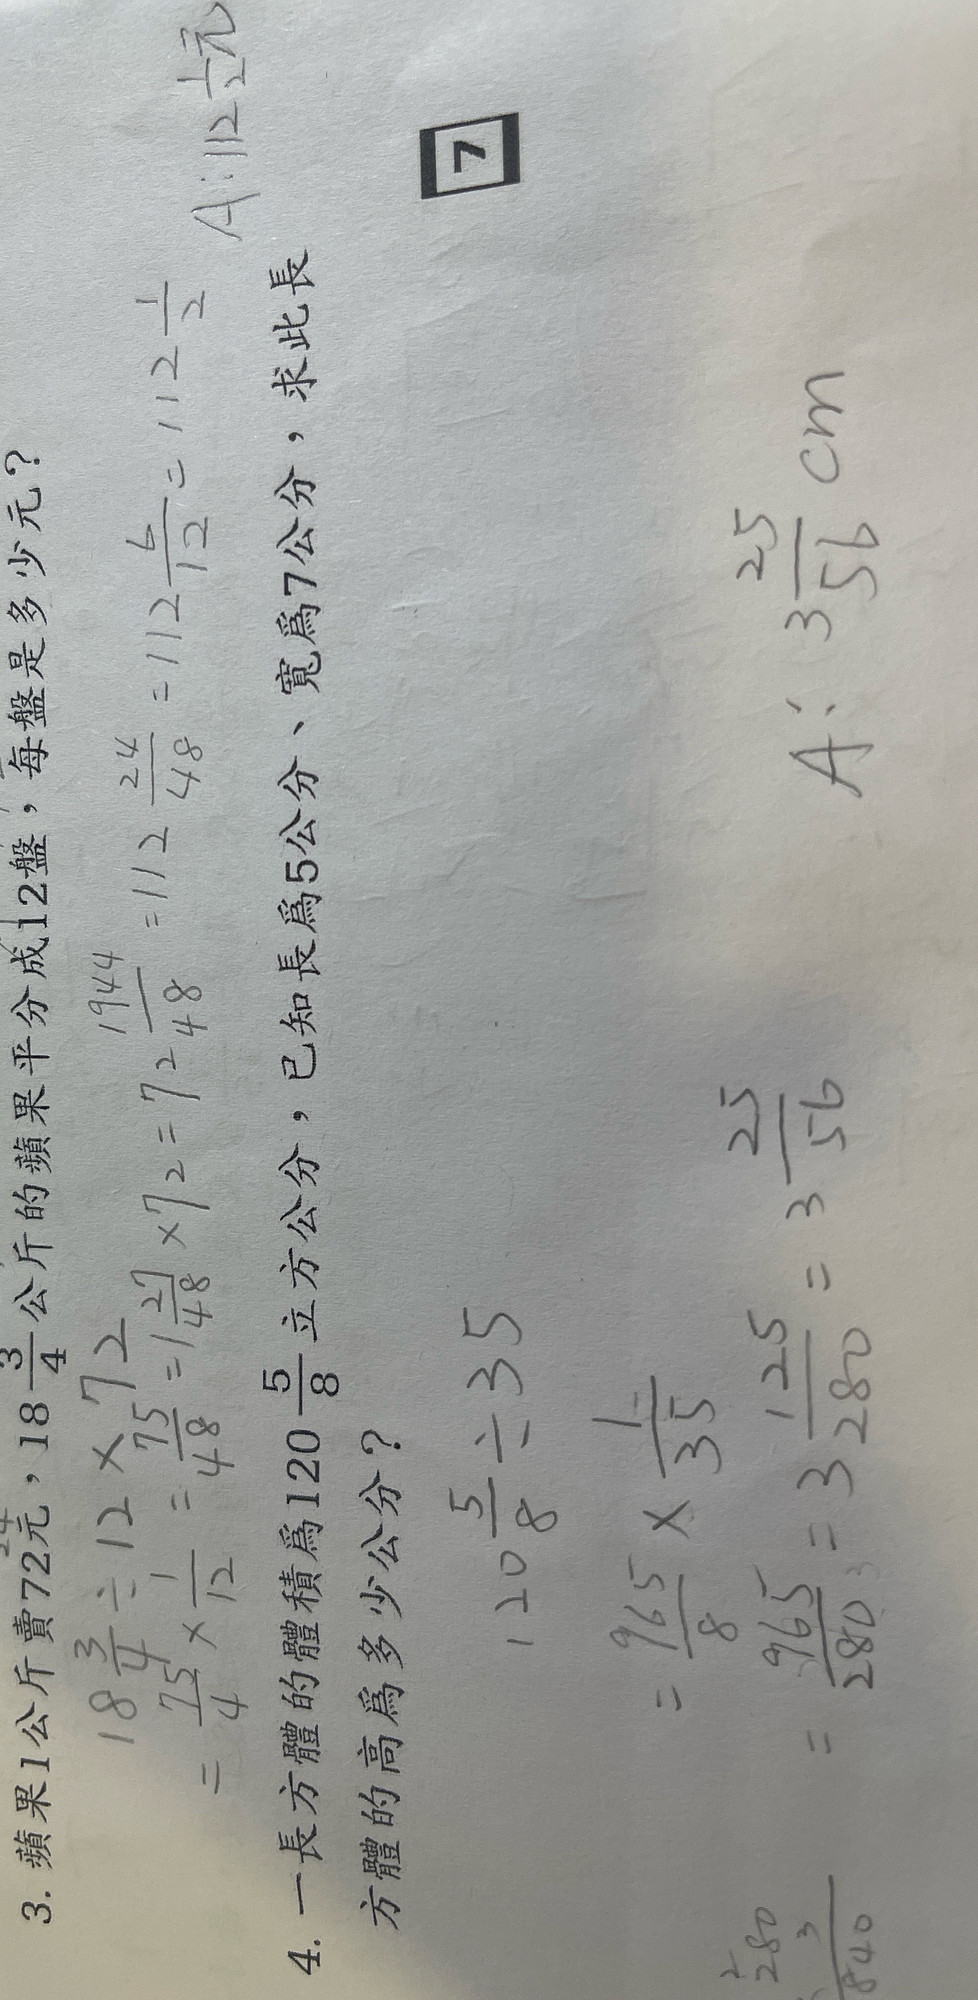 3. 蘋果1公斤賣72元，18 3/4 公斤的蘋果平分成12盤，每盤是多少元？
18 3/4 ÷ 12 × 72
= 75/4 × 1/12 = 75/48 = 1 27/48 × 72 = 72 1944/48 = 112 24/48 = 112 6/12 = 112 1/2
A: 112 1/2 元
4. 一長方體的體積為120 5/8 立方公分，已知長為5公分、寬為7公分，求此長
方體的高為多少公分？
7
120 5/8 ÷ 35
= 965/8 × 1/35
= 965/280 = 3 125/280 = 3 25/56
A: 3 25/56 cm
2
280
3
840